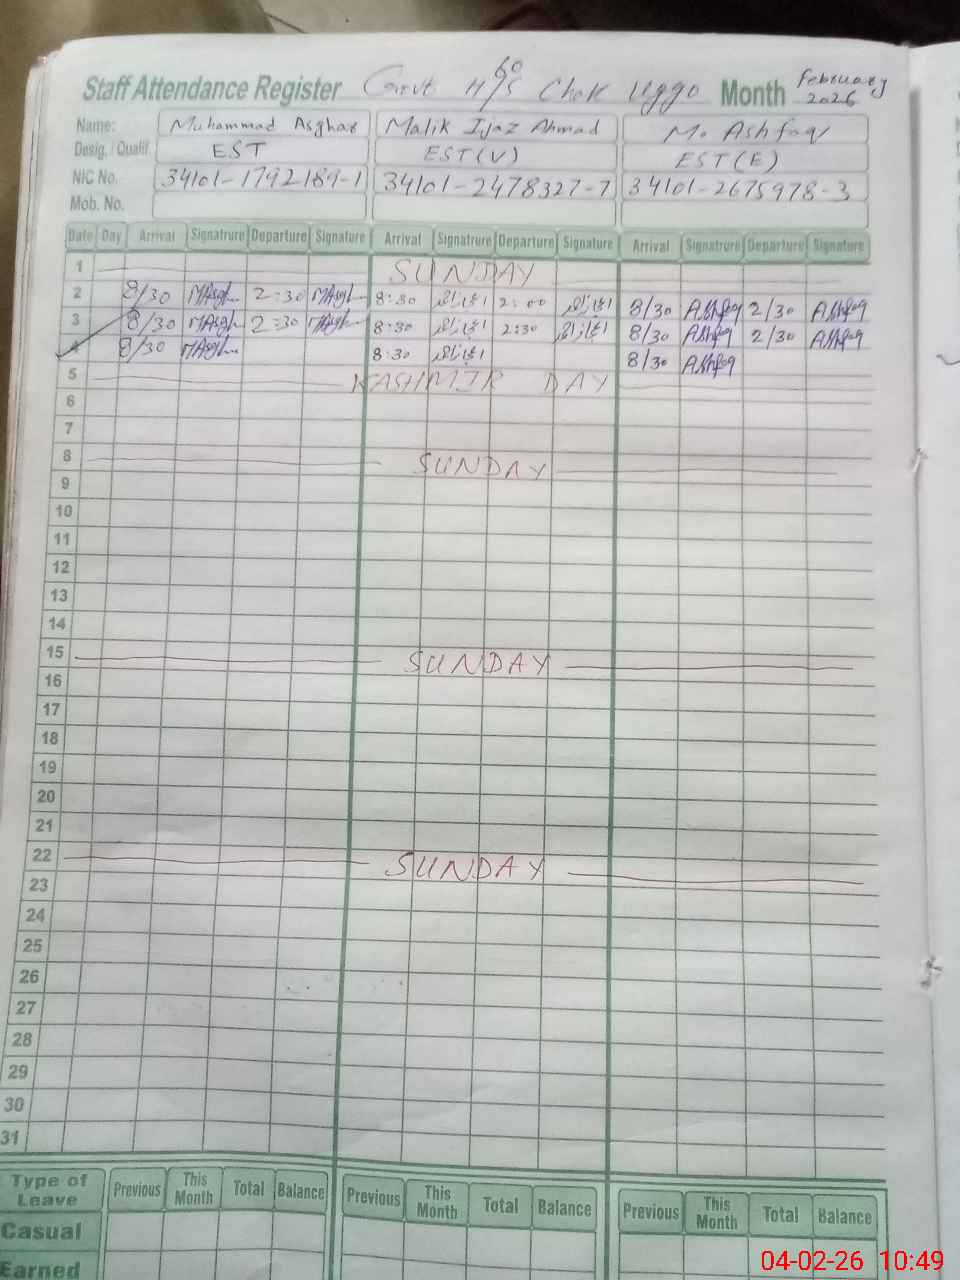 Staff Attendance Register Govt H/S Chak Uggo Month February 2026
Name: Muhammad Asghar Malik Ijaz Ahmad M. Ashfaq
Desig. / Qualif. EST EST(V) EST(E)
NIC No. 34101-1792189-1 34101-2478327-7 34101-2675978-3
Mob. No.
Date Day Arrival Signatrure Departure Signature Arrival Signatrure Departure Signature Arrival Signatrure Departure Signature
1 SUNDAY
2 8/30 MAsgh 2:30 MAsgh 8:30 2:00 8/30 Ashfaq 2/30 Ashfaq
3 8/30 MAsgh 2:30 MAsgh 8:30 2:30 8/30 Ashfaq 2/30 Ashfaq
4 8/30 MAsgh 8:30 8/30 Ashfaq
5 KASHMIR DAY
6
7
8 SUNDAY
9
10
11
12
13
14
15 SUNDAY
16
17
18
19
20
21
22 SUNDAY
23
24
25
26
27
28
29
30
31
Type of Leave Previous This Month Total Balance Previous This Month Total Balance Previous This Month Total Balance
Casual
Earned
04-02-26 10:49